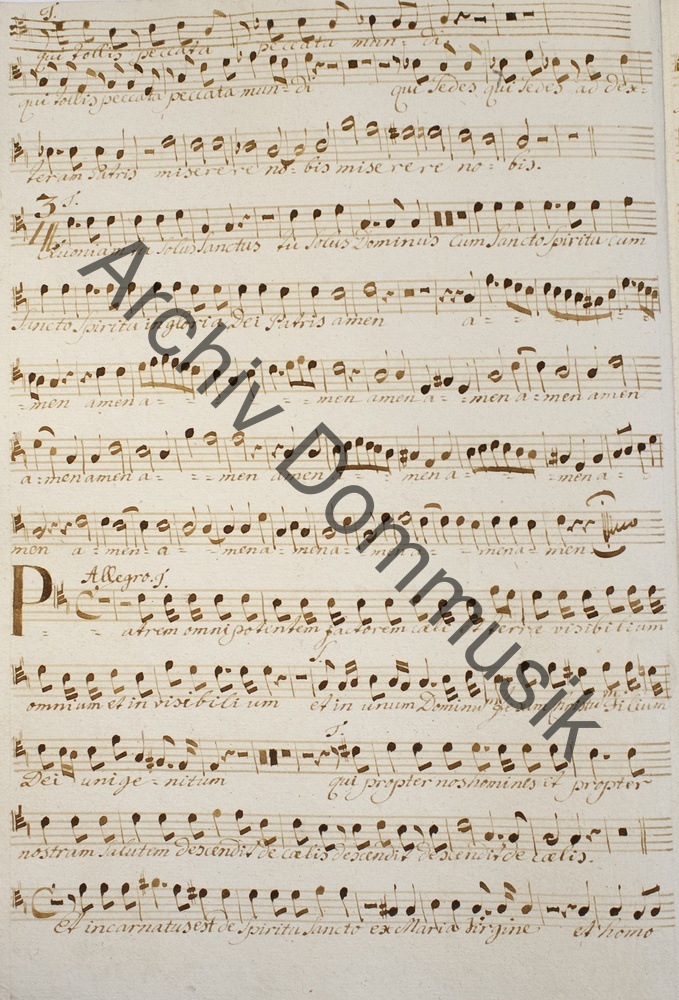 T.
qui tollis peccata peccata mun- di.
qui tollis peccata peccata mun- di qui sedes qui sedes ad dex-
teram Patris miserere no- bis miserere no- bis.
3 T.
Quoniam tu solus Sanctus tu solus Dominus Cum Sancto Spiritu Cum
Sancto Spiritu in gloria Dei Patris amen a- - -
men amen a- - - men amen a- - men a- men amen
a- men amen a- - - men amen a- - men a- - - men a-
men a- men- a- - - mena- mena- men- - - mena- men.
Allegro. T.
P- - - atrem omnipotentem factorem cæli et terræ visibilium
omnium et in visibili um et in unum Dominum Filium
Dei unige- nitum qui propter nos homines et propter
T.
nostram salutem descendit de cælis descendit descendit de cælis.
Et incarnatus est de Spiritu Sancto ex Maria Virgine et homo
Archiv Dommusik